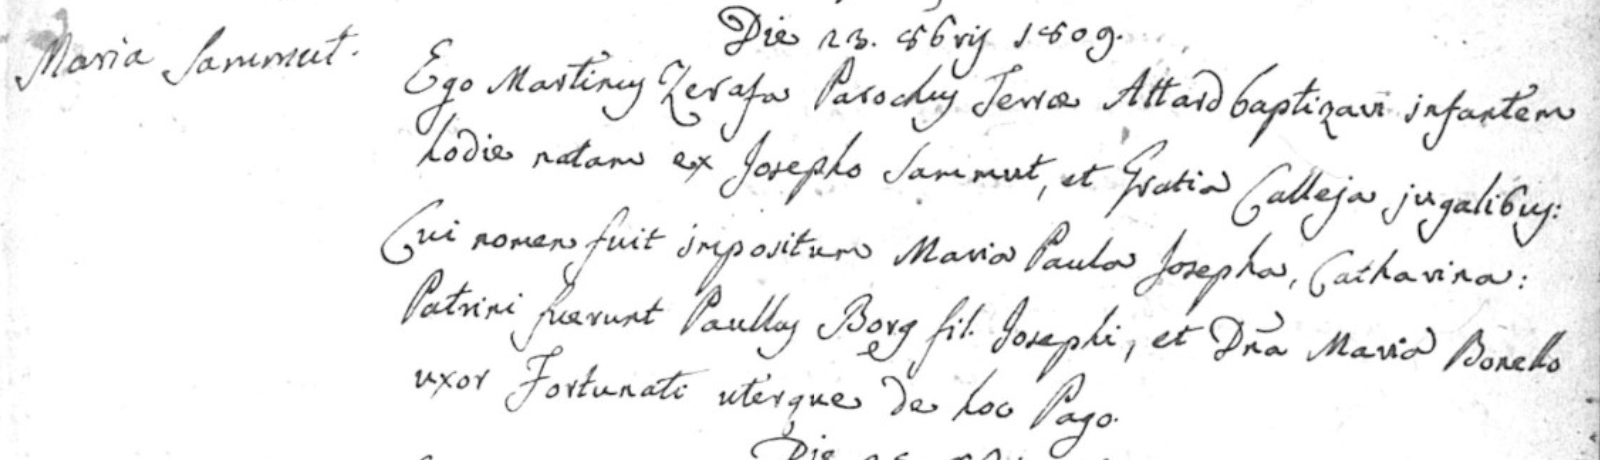 Maria Sammut.
Die 23. 8brij 1809.
Ego Martinus Zerafa Parochus Terræ Attard baptizavi infantem
hodie natam ex Josepho Sammut, et Gratia Calleja jugalibus:
Cui nomen fuit impositum Maria Paula Josepha, Catharina:
Patrini fuerunt Paullus Borg fil. Josephi, et Dña Maria Bonello
uxor Fortunati uterque de hoc Pago.
Die